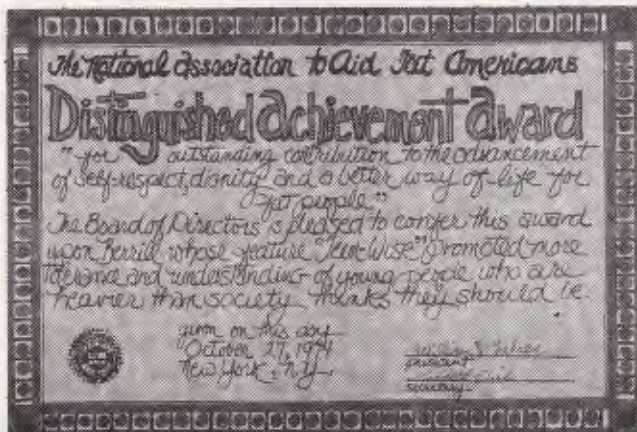 The National Association to Aid Fat Americans
Distinguished Achievement Award
"for outstanding contribution to the advancement
of self-respect, dignity and a better way of life for
fat people"
The Board of Directors is pleased to confer this award
upon Berrill whose feature "Teen-Wise" promoted more
tolerance and understanding of young people who are
heavier than society thinks they should be.
given on this day
October 27, 1974
New York, N.Y.
president
secretary